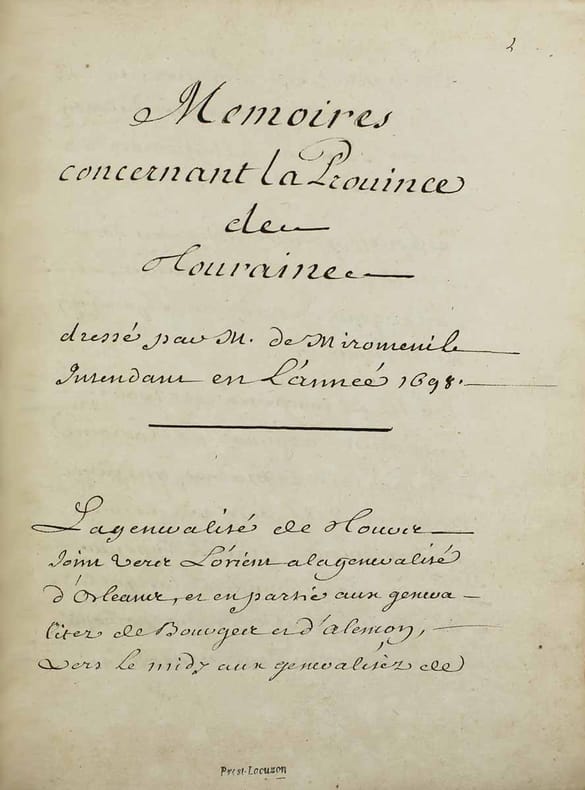 2
Memoires
concernant la Prouince
de
Touraine
dressé par M. de Miromenil
Intendant en L'anneé 1698.
La generalité de Tours
Joint vers L'orient a la generalité
d'Orleans, et en partie aux genera-
litez de Bourges et d'Alencon,
vers le midy aux generalitéz de
Prost-Lacuzon